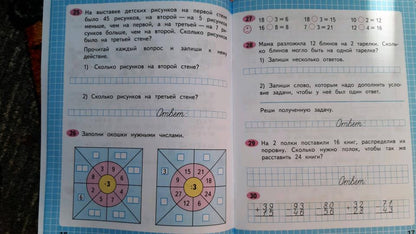 25 На выставке детских рисунков на первой стене
было 45 рисунков, на второй — на 5 рисунков
меньше, чем на первой, а на третьей — на 7 ри-
сунков больше, чем на второй. Сколько рисунков
было на третьей стене?
Прочитай каждый вопрос и запиши к нему
действие.
1) Сколько рисунков на второй стене?
2) Сколько рисунков на третьей стене?
Ответ:
26 Заполни окошки нужными числами.
:3
:3
27 18 3 = 6 18 3 = 15 10 2 = 12
16 8 = 8 7 3 = 21 4 = 16
28 Мама разложила 12 блинов на 2 тарелки. Сколь-
ко блинов могло быть на одной тарелке?
1) Запиши несколько ответов.
2) Запиши слово, которым надо дополнить усло-
вие задачи, чтобы у неё был один ответ.
Реши полученную задачу.
Ответ:
29 На 2 полки поставили 16 книг, распределив их
поровну. Сколько нужно полок, чтобы так же
расставить 24 книги?
Ответ:
30